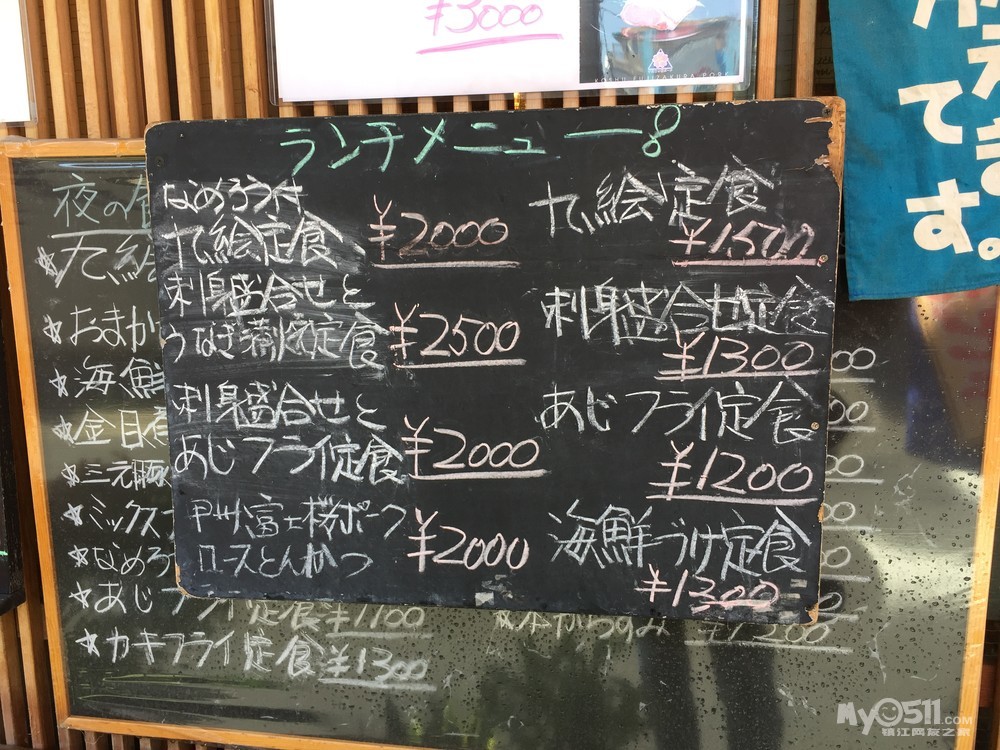 ¥3000
KOSHU FUJIZAKURA PORK
てます。
ランチメニュー
なめろう付
九絵定食 ¥2000
刺身盛合せと
うなぎ蒲焼定食 ¥2500
刺身盛合せと
あじフライ定食 ¥2000
甲州富士桜ポーク
ロースとんかつ ¥2000
九絵定食
¥1500
刺身盛合せ定食
¥1300
あじフライ定食
¥1200
海鮮づけ定食
¥1300
夜の
★九絵
★おまか
★海鮮
★金目
★三元豚
★ミックス
★なめろ
★あじフライ定食 ¥1100
★カキフライ定食 ¥1300
¥1200
My0511.COM
镇江网友之家